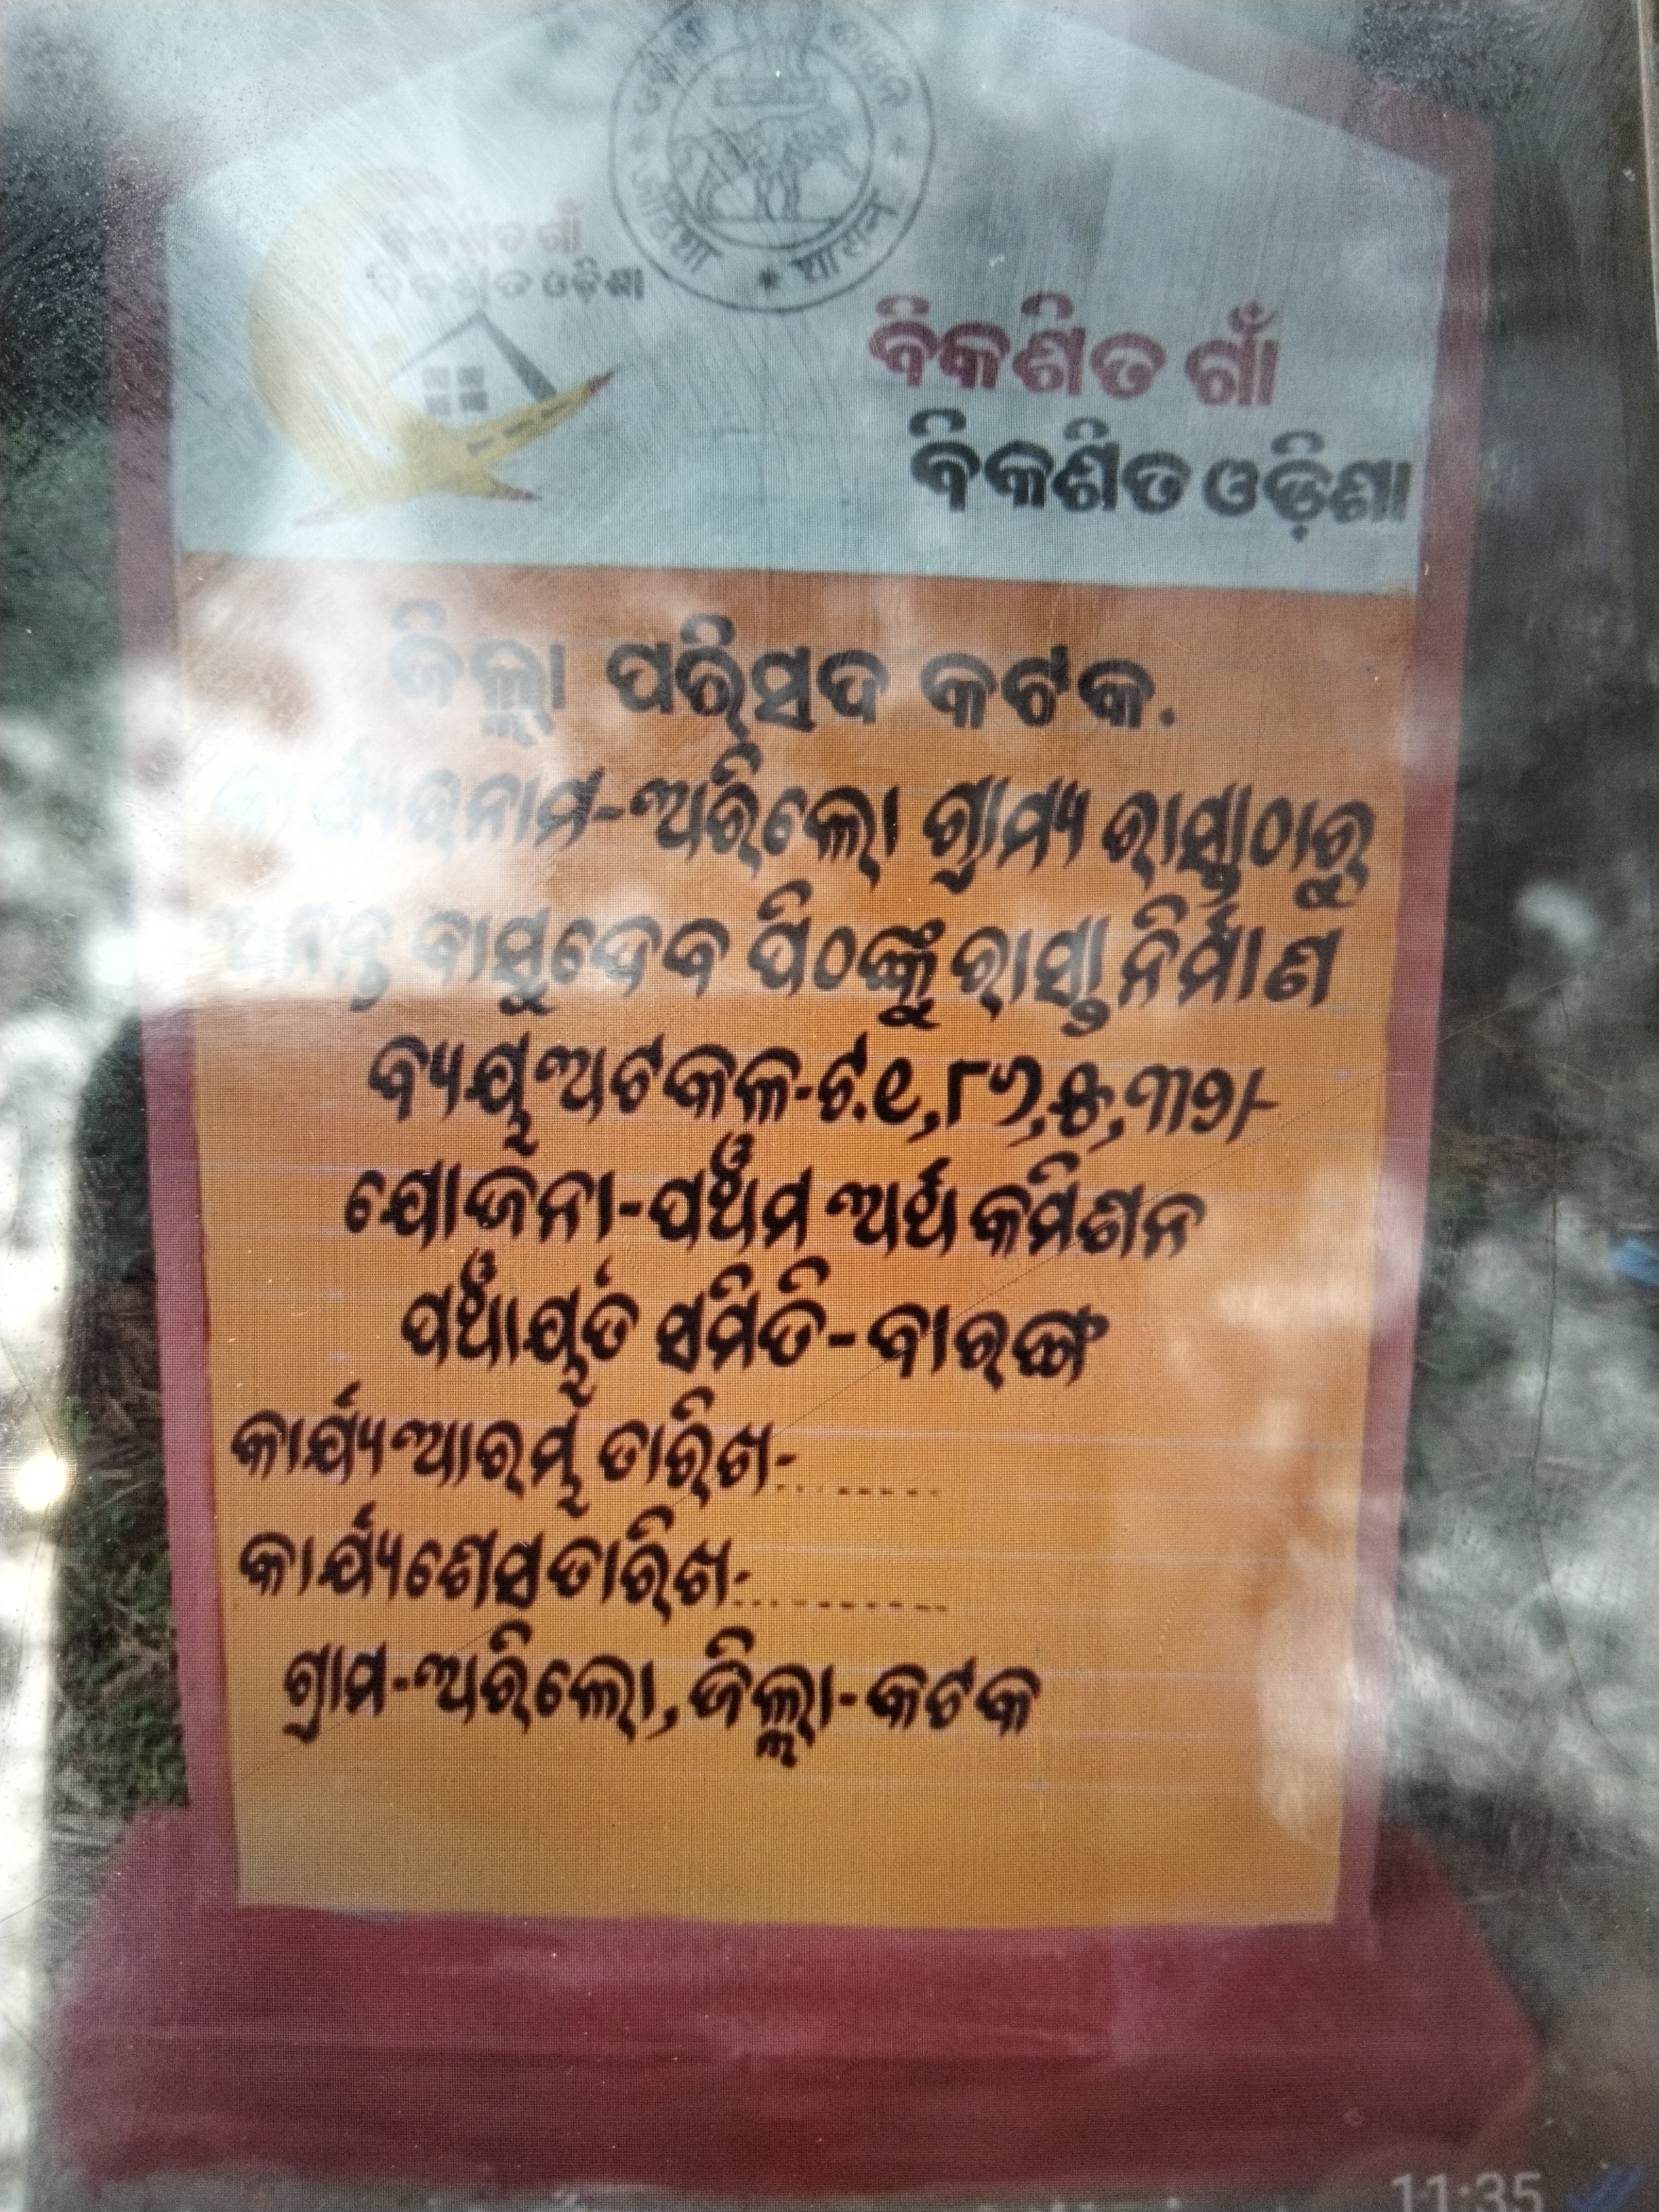 ଓଡ଼ିଶା ଶାସନ
ବିକଶିତ ଗାଁ
ବିକଶିତ ଓଡ଼ିଶା
ବିକଶିତ ଗାଁ
ବିକଶିତ ଓଡ଼ିଶା
ଜିଲ୍ଲା ପରିସଦ କଟକ.
କାର୍ଯ୍ୟରନାମ-ଅରିଲୋ ଗ୍ରାମ୍ୟ ରାସ୍ତାଠାରୁ
ଅନନ୍ତ ବାସୁଦେବ ପିଠଙ୍କୁ ରାସ୍ତା ନିର୍ମାଣ
ବ୍ୟୟ ଅଟକଳ-ଟ.୧,୮୬,୫,୩୨/-
ଯୋଜନା-ପଞ୍ଚମ ଅର୍ଥ କମିଶନ
ପଞ୍ଚାୟତ ସମିତି-ବାରଙ୍ଗ
କାର୍ଯ୍ୟ ଆରମ୍ଭ ତାରିଖ-..........
କାର୍ଯ୍ୟ ଶେସ ତାରିଖ-..........
ଗ୍ରାମ-ଅରିଲୋ, ଜିଲ୍ଲା-କଟକ
11:35